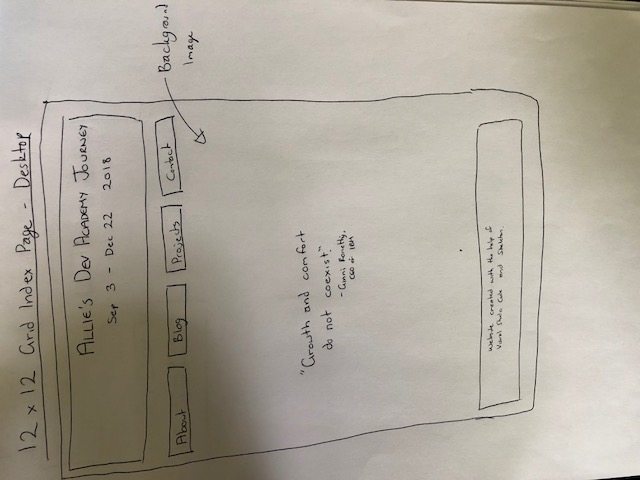 12 x 12 Grid Index Page - Desktop
ALLIE'S DEV ACADEMY JOURNEY
Sep 3 - Dec 22 2018
About
Blog
Projects
Contact
Background
Image
"Growth and comfort
do not coexist."
- Ginni Rometty,
CEO of IBM
Website created with the help of
Visual Studio Code and Skeleton.